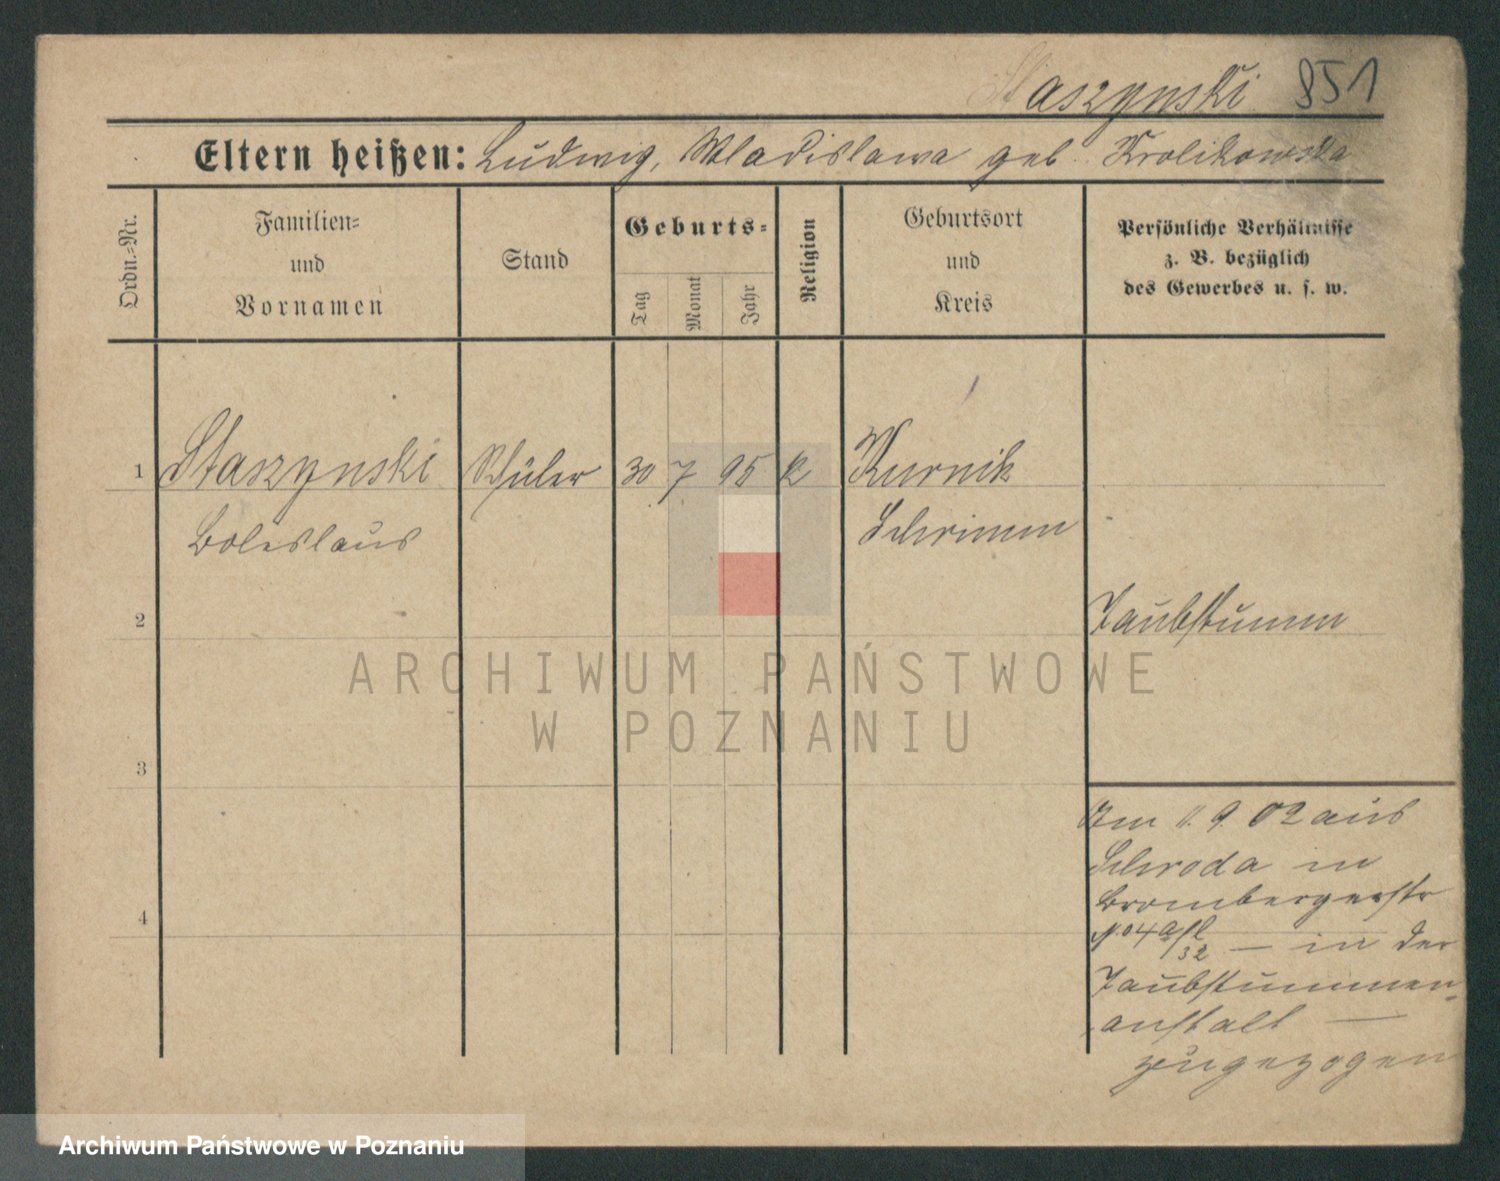 Staszynski 851
Eltern heißen: Ludwig, Wladislawa geb. Krolikowska
Ordn.-Nr.
Familien-
und
Vornamen
Stand
Geburts-
Tag
Monat
Jahr
Religion
Geburtsort
und
Kreis
Persönliche Verhältnisse
z. B. bezüglich
des Gewerbes u. s. w.
1 Staszynski Schüler 30 7 95 k Kurnik
Boleslaus Schrimm
2 Taubstumm
3
Am 11. 9. 02 aus
Schroda in
Brombergerstr
4
No 4 — in der
Taubstummen-
anstalt —
zugezogen
ARCHIWUM PAŃSTWOWE
W POZNANIU
Archiwum Państwowe w Poznaniu